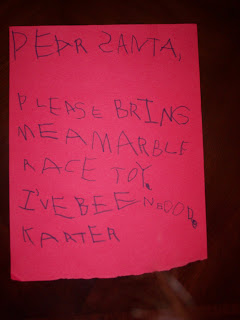 DEAR SANTA,
PLEASE BRING
ME A MARBLE
RACE TOY.
I'VE BEEN GOOD.
KARTER